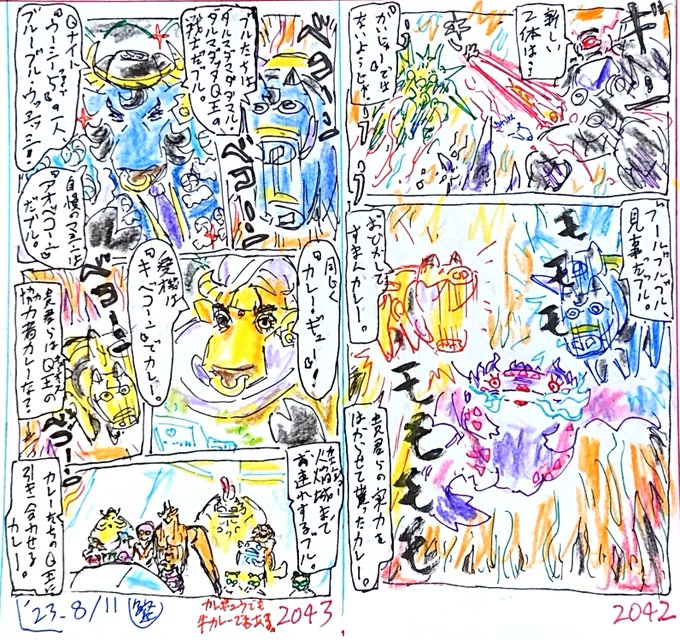 ギ
新しい
2体は…
がいじゅーでは
ないようじゃ。
うううう
ブールブルブル、
見事だったブル。
モモモ
おひかえ
すまんカレー。
モモモモモ
貴君らの実力を
はからせて貰ったカレー。
2042
ベコーン
ブルたちは
ダルマダッタQ王の
戦士だブル。
ベコーン
Qナイト
の一人
ブルーブル・ヴァエッシ!
自慢のマシンは
アオベコーン
だブル。
同じく
カレー・ギュー!
愛機は
キベコーンでカレー。
ベコーン
貴君らはQ王の
協力者カレーな?
ベコーン
火焔城まで
お連れするブル。
カレーたちのQ王に
引き合わせる
カレー。
'23-8/11
カレギュウでも
牛カレーでもある。
2043